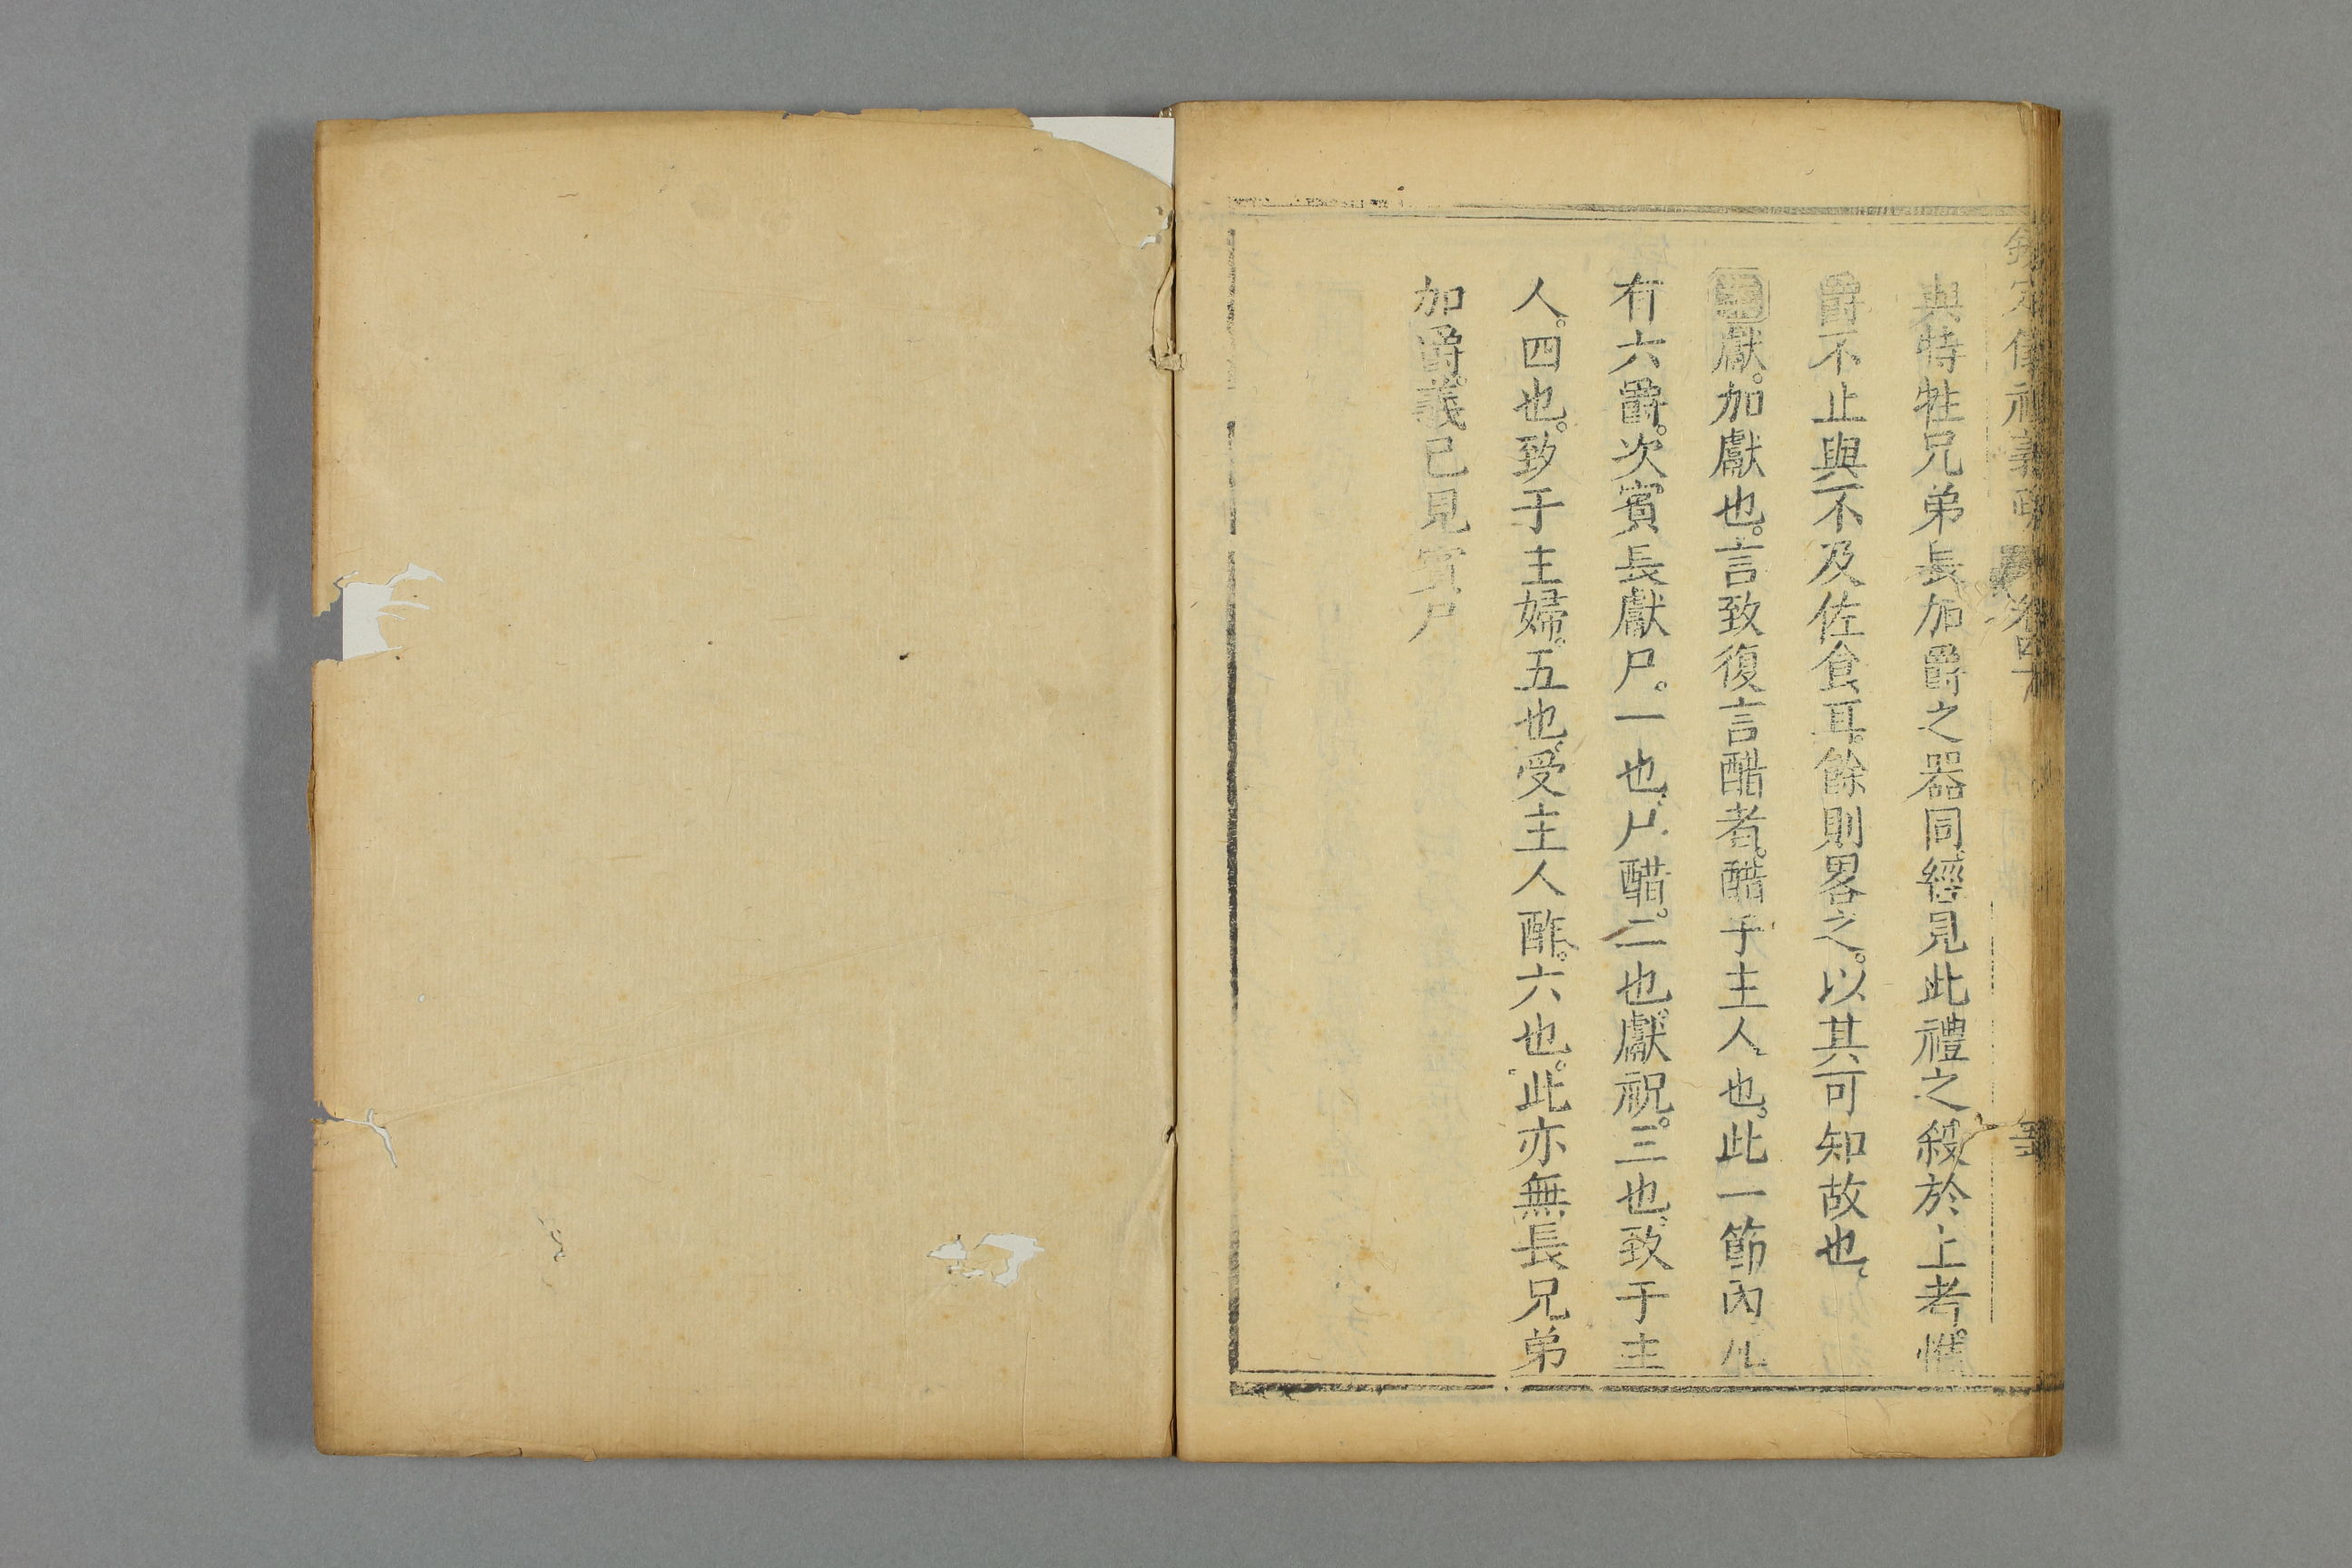 欽定儀禮義疏 卷四十
與特牲兄弟長加爵之器同經見此禮之殺於上者。惟
爵不止與不及佐食耳。餘則畧之。以其可知故也。
獻。加獻也。言致復言醋者。醋于主人也。此一節內凡
有六爵。次賓長獻尸。一也。尸醋。二也。獻祝。三也。致于主
人。四也。致于主婦。五也。受主人酢。六也。此亦無長兄弟
加爵。義已見賓尸